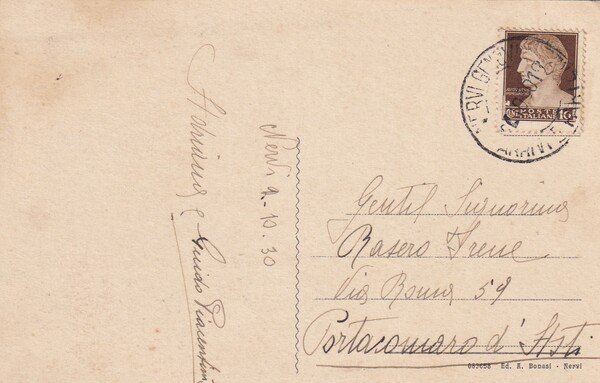 Nervi 9-10.30
Adriana e
Guido Piacentini
POSTE
ITALIANE
10
NERVI GENOVA
Gentil Signorina
Rasero Irene
Via Roma 59
Portacomaro d'Asti
Ed. A. Bonasi - Nervi